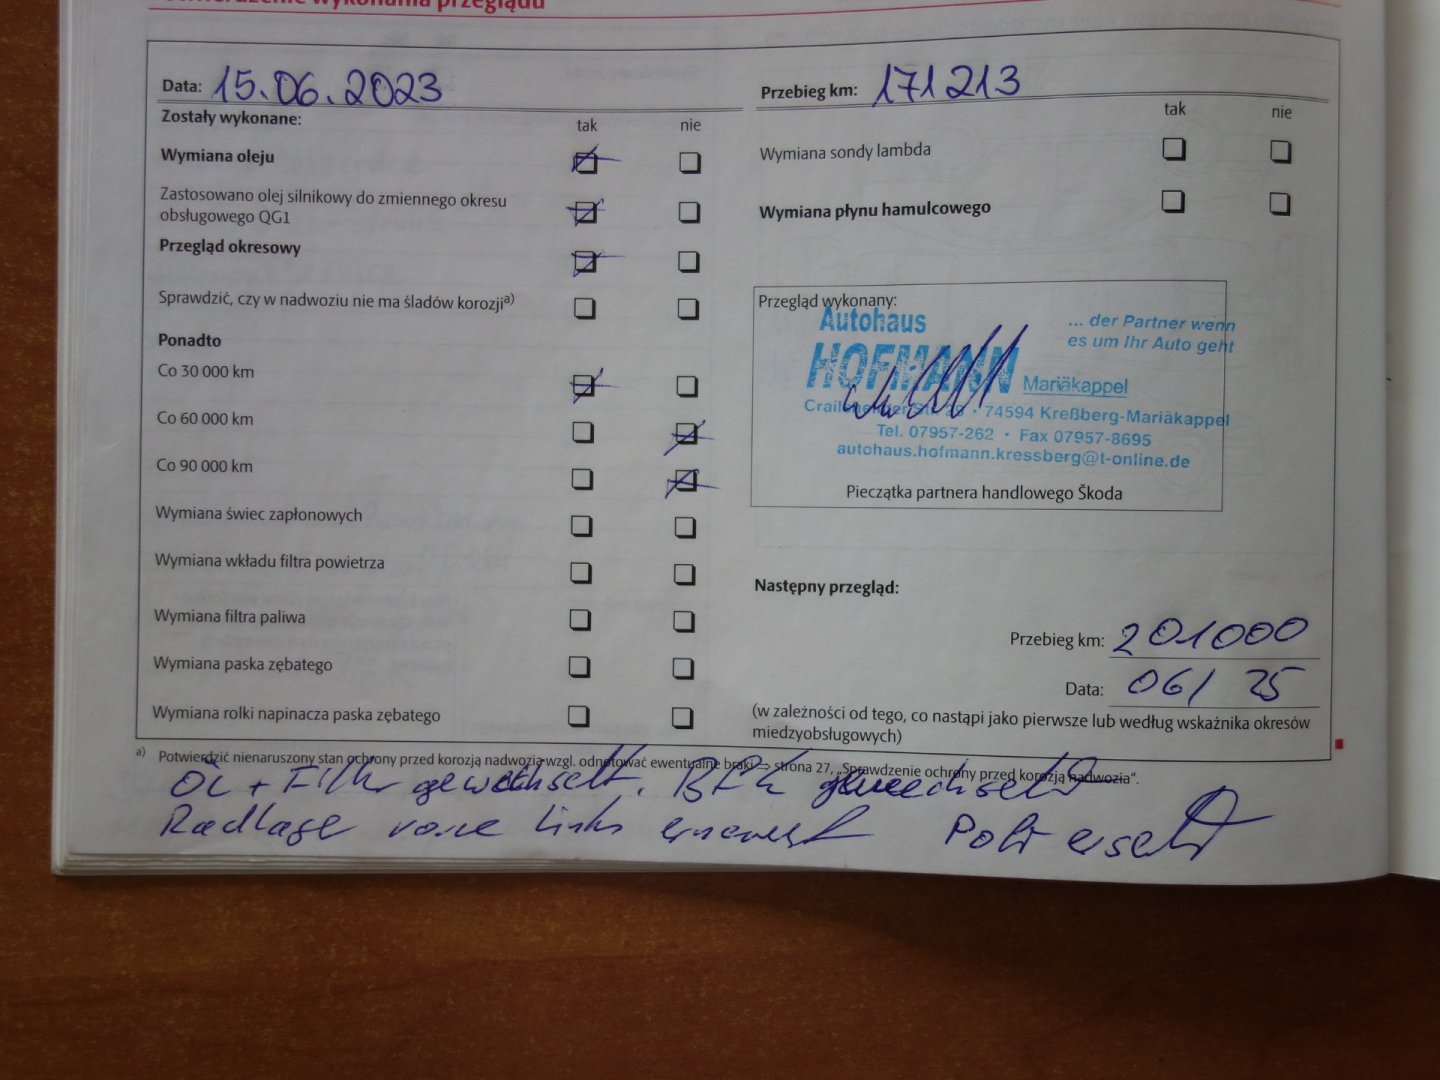 Potwierdzenie wykonania przeglądu
Data: 15.06.2023
Zostały wykonane:
tak nie
Wymiana oleju
Zastosowano olej silnikowy do zmiennego okresu
obsługowego QG1
Przegląd okresowy
Sprawdzić, czy w nadwoziu nie ma śladów korozji a)
Ponadto
Co 30 000 km
Co 60 000 km
Co 90 000 km
Wymiana świec zapłonowych
Wymiana wkładu filtra powietrza
Wymiana filtra paliwa
Wymiana paska zębatego
Wymiana rolki napinacza paska zębatego
Przebieg km: 171213
tak nie
Wymiana sondy lambda
Wymiana płynu hamulcowego
Przegląd wykonany:
Autohaus
HOFMANN Mariäkappel
... der Partner wenn
es um Ihr Auto geht
74594 Kreßberg-Mariäkappel
Tel. 07957-262 · Fax 07957-8695
autohaus.hofmann.kressberg@t-online.de
Pieczątka partnera handlowego Škoda
Następny przegląd:
Przebieg km: 201000
Data: 06/25
(w zależności od tego, co nastąpi jako pierwsze lub według wskaźnika okresów
miedzyobsługowych)
a) Potwierdzić nienaruszony stan ochrony przed korozją nadwozia wzgl. odnotować ewentualne braki ⇒ strona 27, „Sprawdzenie ochrony przed korozją nadwozia“.
+ Filter gewechselt.
links erneuert ersetzt